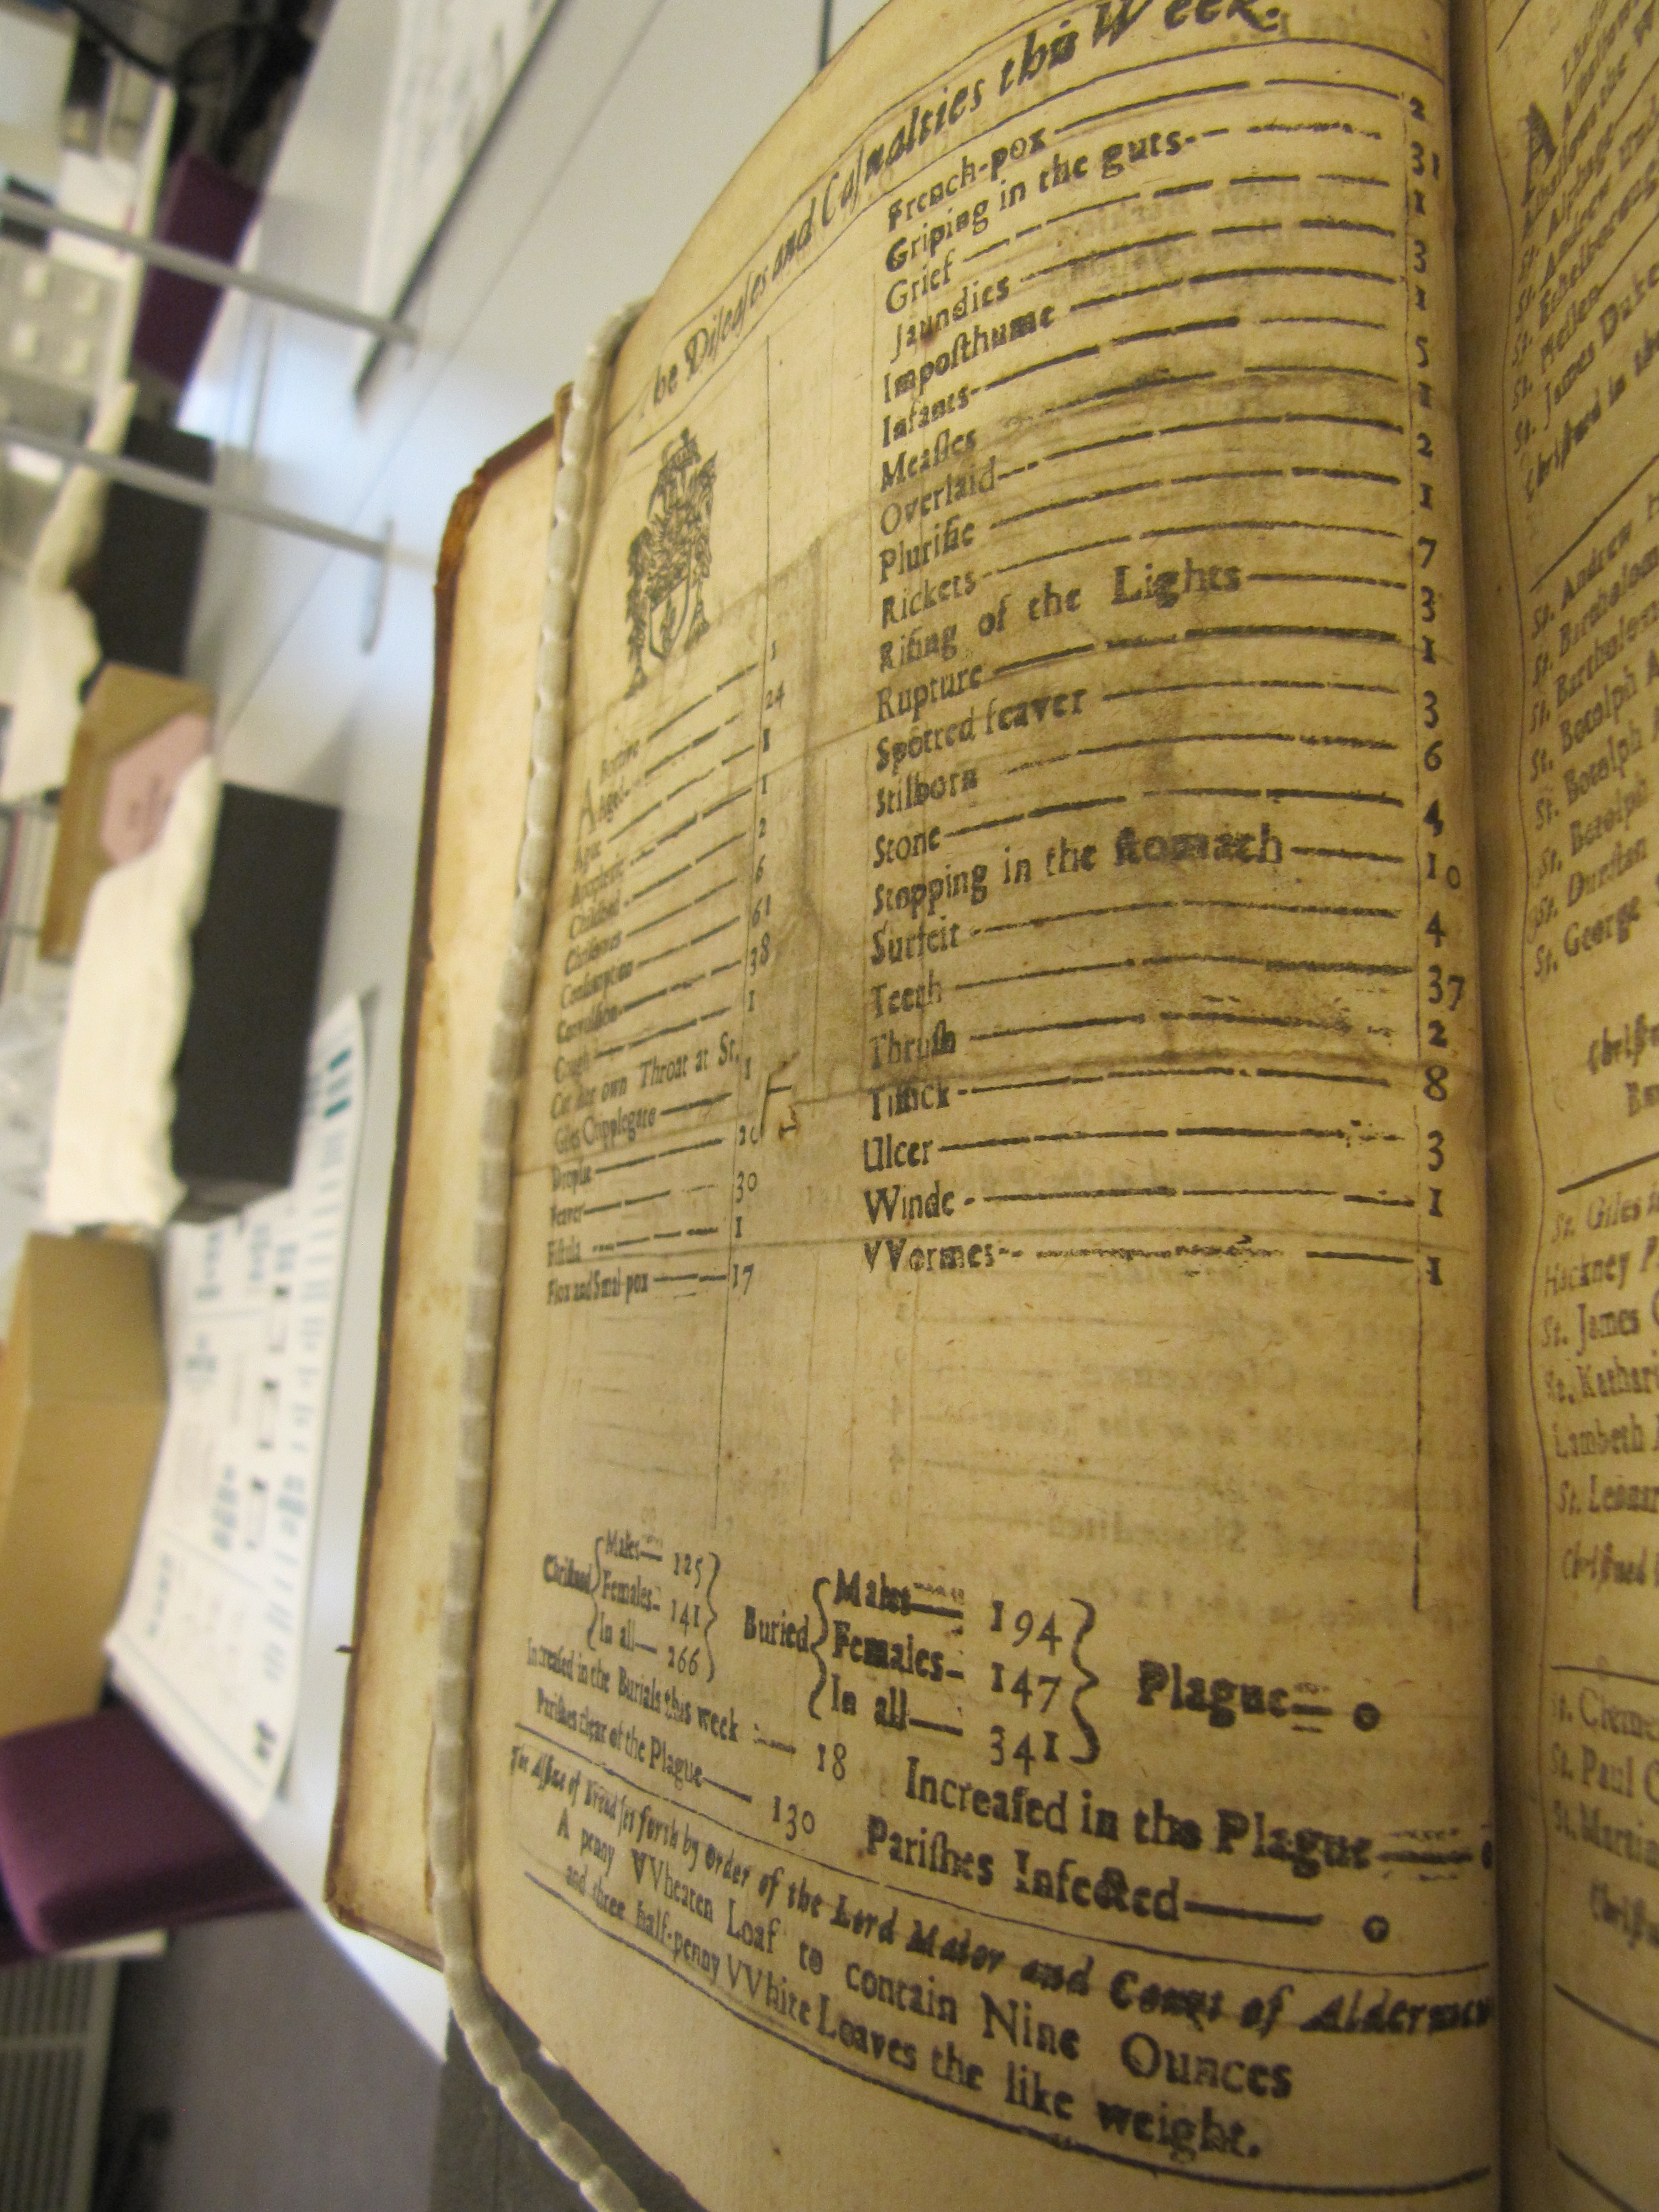 he Diseases and Casualties this Week.
Abortive — 1
Aged — 24
Ague — 1
Apoplexie — 1
Childbed — 2
Chrisomes — 6
Consumption — 61
Convulsion — 38
Cough — 1
Cut her own Throat at St.
Giles Cripplegate — 1
Dropsie —
Feaver — 30
Fistula — 1
Flox and Smal-pox — 17
French-pox — 2
Griping in the guts — 31
Grief — 1
Jaundies — 3
Imposthume — 1
Infants — 5
Measles — 1
Overlaid — 2
Plurisie — 1
Rickets — 7
Rising of the Lights — 3
Rupture — 1
Spotted feaver — 3
Stilborn — 6
Stone — 4
Stopping in the stomach — 10
Surfeit — 4
Teeth — 37
Thrush — 2
Tissick — 8
Ulcer — 3
Winde — 1
VVormes — 1
Christned { Males — 125
Females — 141
In all — 266 }
Buried { Males — 194
Females — 147
In all — 341 }
Plague — 0
Increased in the Burials this week — 18
Parishes clear of the Plague — 130
Increased in the Plague — 0
Parishes Infected — 0
The Assize of Bread set forth by Order of the Lord Maior and Court of Aldermen
A penny VVheaten Loaf to contain Nine Ounces
and three half-penny VVhite Loaves the like weight.
St. James Duke
Christned in the
St. Andrew
St. Botolph A
St. Botolph
St. Botolph
St. Dunstan
St. George
St. Giles
Hackney P
St. James C
St. Kathari
Lambeth
St. Leonar
Christned
St. Cleme
St. Paul C
St. Martin